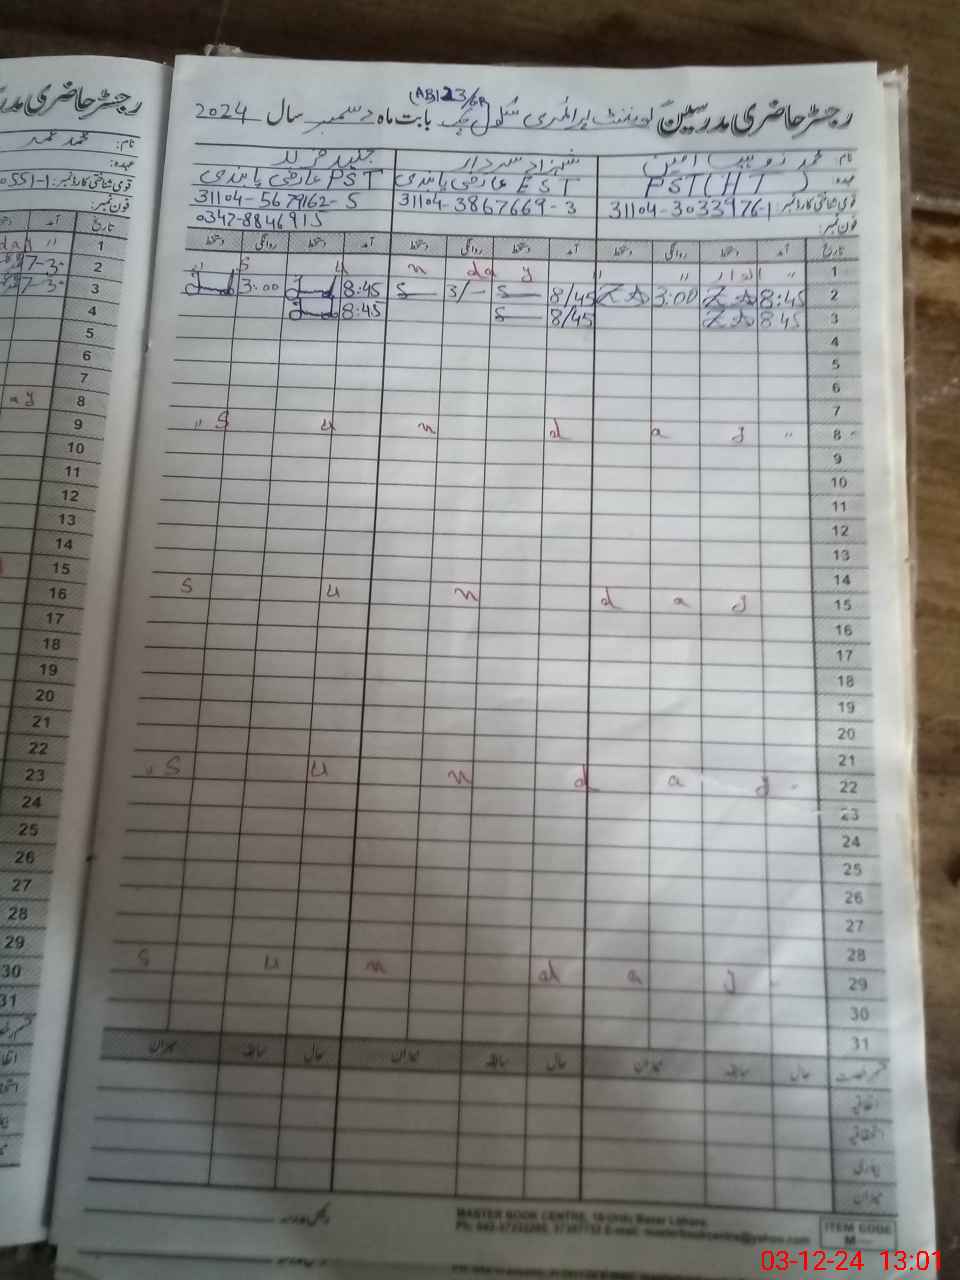 رجسٹر حاضری مدرسین گورنمنٹ پرائمری سکول چک 123/6R (AB) بابت ماہ دسمبر سال 2024
نام: محمد زوہیب امین شہزاد سردار جنید فرید
عہدہ PST (HT) EST عارضی پابندی PST عارضی پابندی
قومی شناختی کارڈ نمبر: 31104-3033976-1 31104-3867669-3 31104-5679162-5
فون نمبر: 0347-8846915
تاریخ آمد دستخط روانگی دستخط آمد دستخط روانگی دستخط آمد دستخط روانگی دستخط
1 " اتوار " " S u n da y
2 8:45 3:00 8/45 3/- 8:45 3:00
3 8:45 8/45 8:45
4
5
6
7
8 " S u n d a y "
9
10
11
12
13
14
15 S u n d a y
16
17
18
19
20
21
22 " S u n d a y -
23
24
25
26
27
28
29 S u n d a y -
30
31
قسم رخصت حال سابقہ میزان حال سابقہ میزان حال سابقہ میزان
اتفاقیہ
استحقاقیہ
بیماری
میزان
MASTER BOOK CENTRE, 18-Urdu Bazar Lahore.
ITEM CODE
M—
رجسٹر حاضری مدر
نام: محمد عمد
عہدہ:
قومی شناختی کارڈ نمبر: 0551-1
فون نمبر:
تاریخ آمد
1 day "
2 7-3
3 7-3
4
5
6
7
8 ay
9
10
11
12
13
14
15
16
17
18
19
20
21
22
23
24
25
26
27
28
29
30
31
03-12-24 13:01